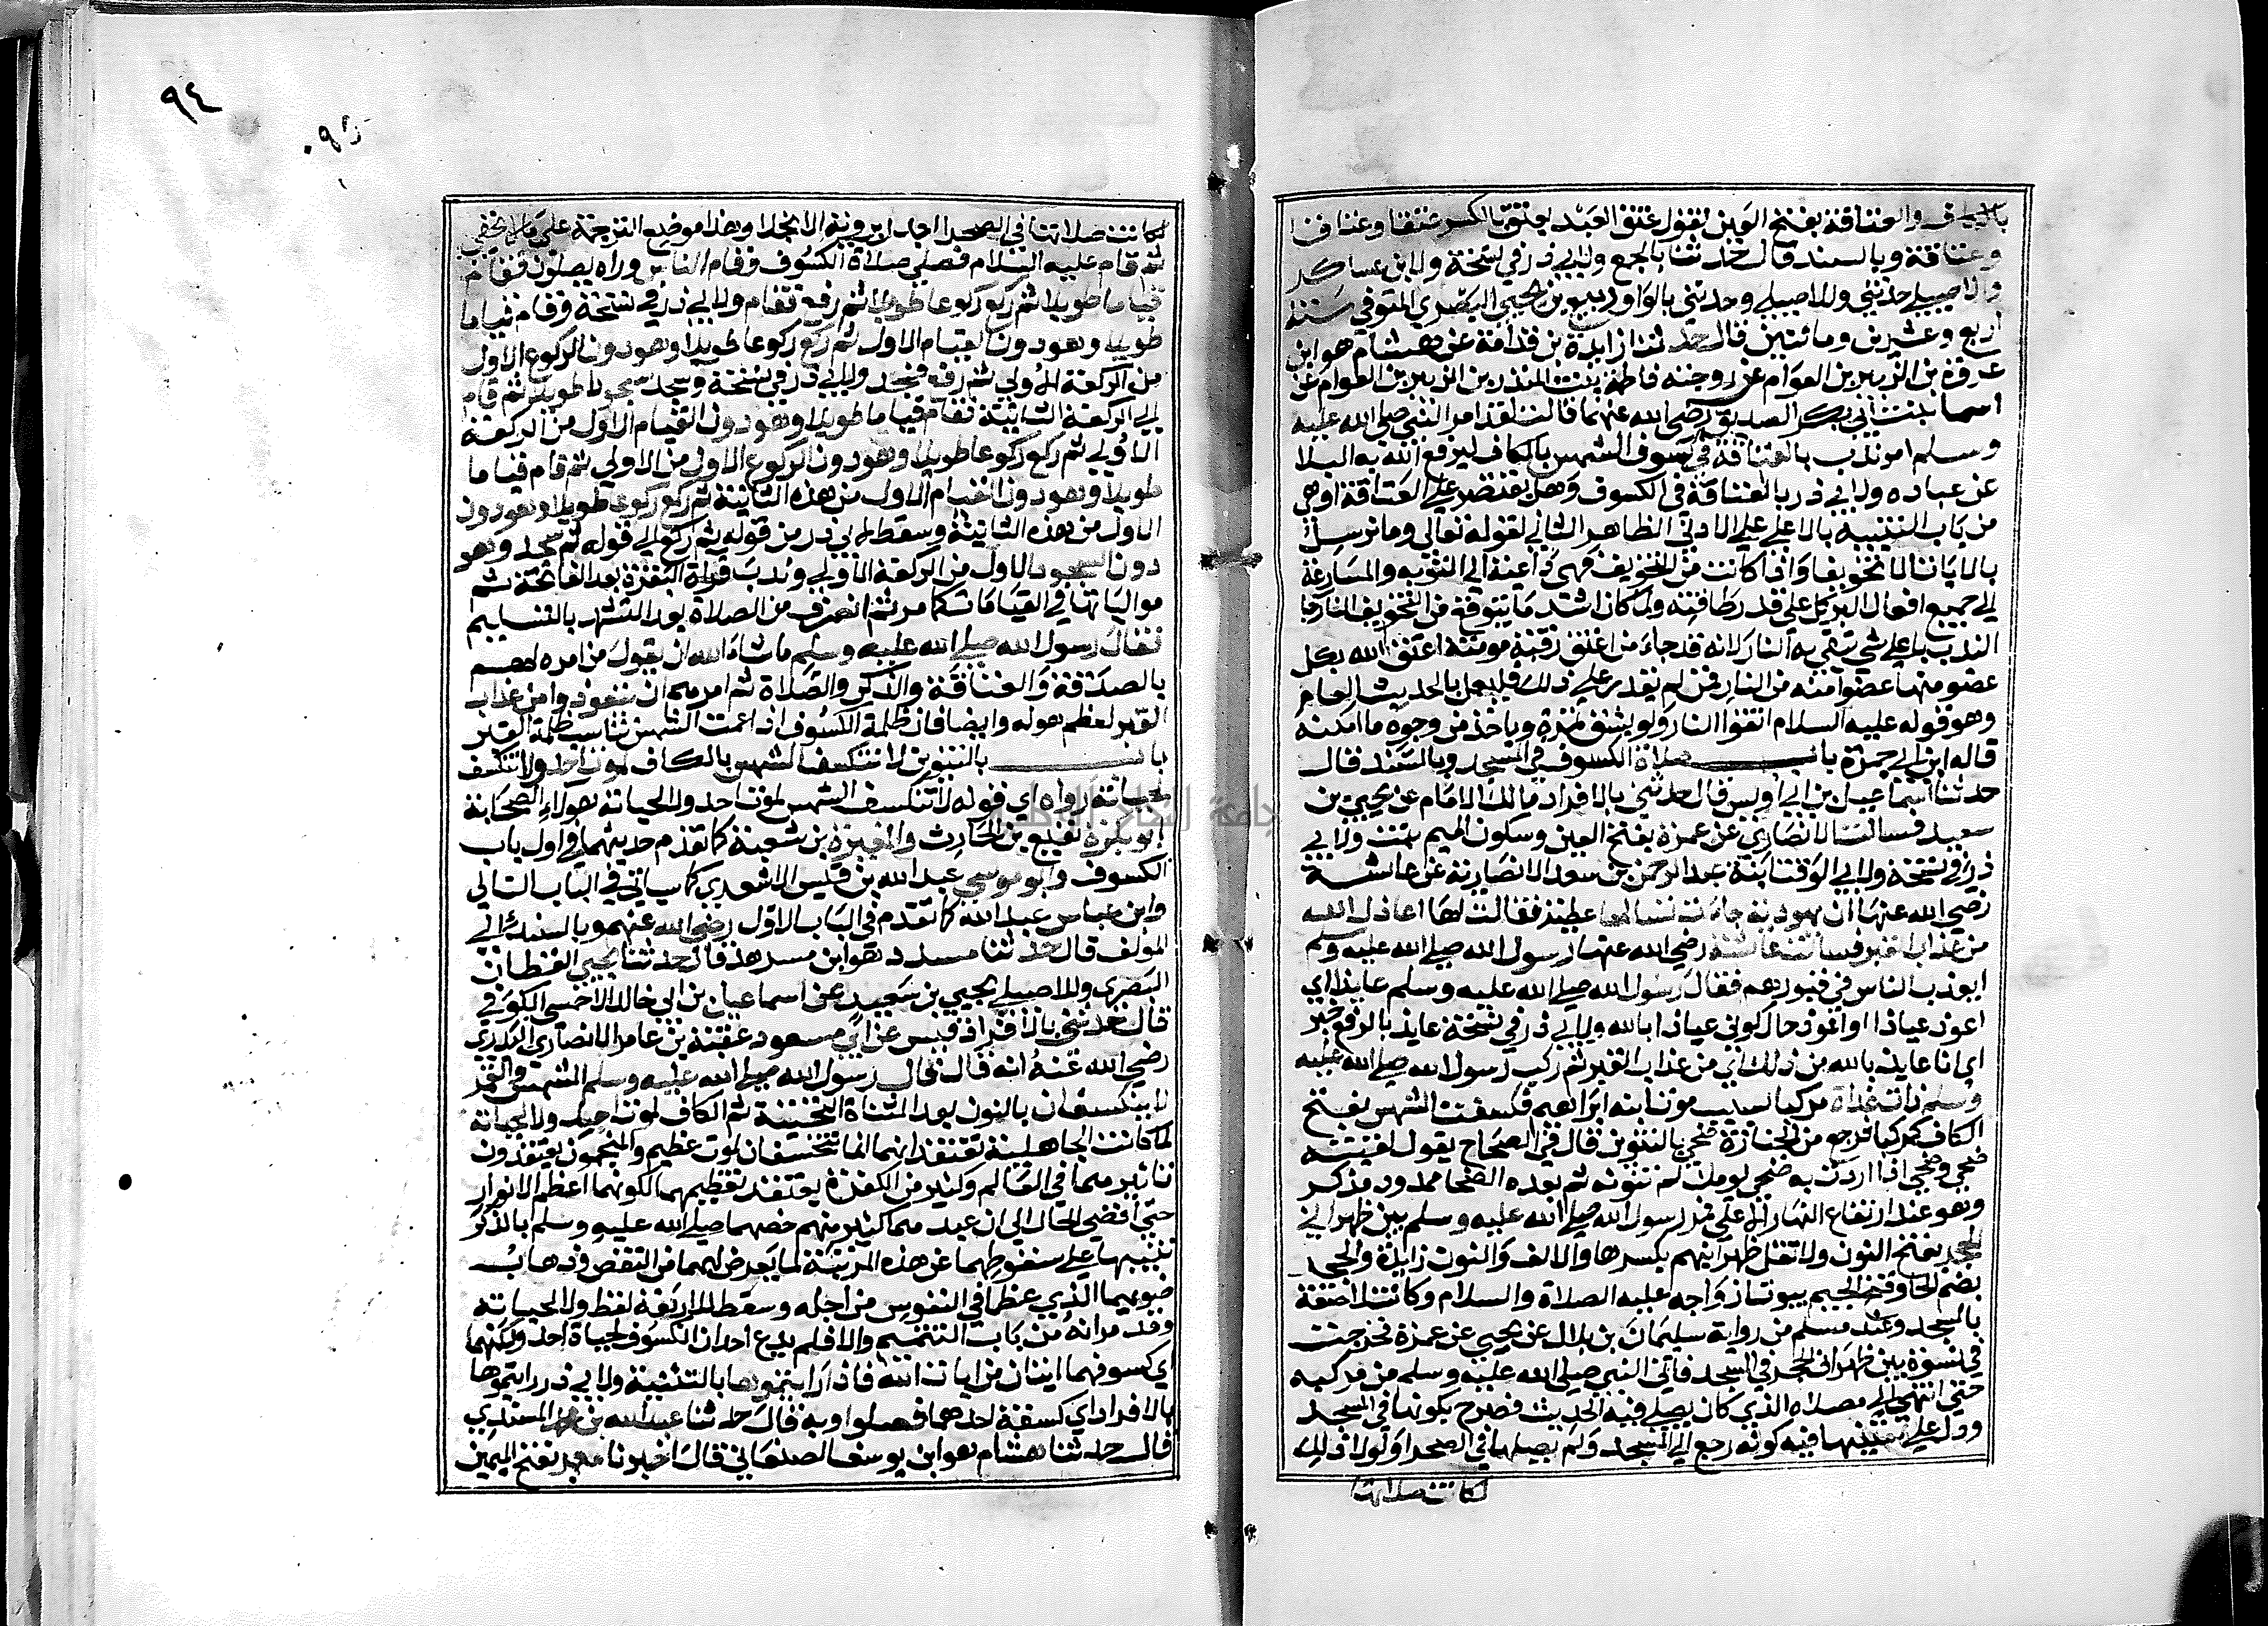 والعتاقة بفتح العين تقول عتق العبد يعتق بالكسر عتقا وعتاقا
وعتاقة وبالسند قال حدثنا بالجمع ولابي ذر في نسخة ولابن عساكر
والاصيلي حدثني وللاصيلي وحدثني بالواو ربيع بن يحيى البصري المتوفي سنة
اربع وعشرين ومائتين قال حدثنا زايدة بن قدامة عن هشام هو ابن
عروة بن الزبير بن العوام عن زوجته فاطمة بنت المنذر بن الزبير بن العوام عن
اسما بنت ابي بكر الصديق رضي الله عنهما قالت لقد امر النبي صلى الله عليه
وسلم امر ندب بالعتاقة في كسوف الشمس بالكاف ليرفع الله به البلا
عن عباده ولابي ذر بالعتاقة في الكسوف وهل يقتصر على العتاقة او هي
من باب التنبيه بالاعلى على الادنى الظاهر الثاني لقوله تعالى وما نرسل
بالايات الا تخويفا واذا كانت من التخويف فهي داعية الى التوبه والمسارعة
الى جميع افعال البر كل على قدر طاقته ولما كان اشد ما يتوقع من التخويف النار جا
الندب باعلى شي يتقى به النار لانه قد جاء من اعتق رقبة مومنة اعتق الله بكل
عضو منها عضوا منه من النار فمن لم يقدر على ذلك فليعمل بالحديث العام
وهو قوله عليه السلام اتقوا النار ولو بشق تمرة وياخذ من وجوه ما امكنه
قاله ابن ابي جمرة باب صلاة الكسوف في المسجد وبالسند قال
حدثنا اسماعيل بن ابي اويس قال حدثني بالافراد مالك الامام عن يحيى بن
سعيد الانصاري عن عمرة بفتح العين وسكون الميم بنت ولابي
ذر في نسخة ولابي الوقت ابنة عبد الرحمن بن سعد الانصارية عن عائشة
رضي الله عنها ان يهودية جاءت تسالها عطية فقالت لها اعاذك الله
من عذاب القبر فسالت عائشة رضي الله عنها رسول الله صلى الله عليه وسلم
ايعذب الناس في قبورهم فقال رسول الله صلى الله عليه وسلم عايذا اي
اعوذ عياذا او اعوذ حال كوني عياذا بالله ولابي ذر في نسخة عايذ بالرفع خبر
اي انا عايذ بالله من ذلك اي من عذاب القبر ثم ركب رسول الله صلى الله عليه
وسلم ذات غداة مركبا بسبب موت ابنه ابراهيم فكسفت الشمس بفتح
الكاف كركبا فرجع من الجنازة ضحى بالتنوين قال في الصحاح يقول لقيته
ضحى وضحى اذا اردت به ضحى يومك لم تنونه ثم بعده الضحا ممدود مذكر
وهو عند ارتفاع النهار الاعلى فمر رسول الله صلى الله عليه وسلم بين ظهراني
الحجر بفتح النون ولا تقل ظهرانيهم بكسرها والالف والنون زايدة والحجر
بضم الحا وفتح الجيم بيوت ازواجه عليه الصلاة والسلام وكانت لاصقة
بالمسجد وعند مسلم من رواية سليمان بن بلال عن يحيى عن عمرة فخرجت
في نسوة بين ظهراني الحجر في المسجد فاتى النبي صلى الله عليه وسلم من مركبه
حتى انتهى الى مصلاه الذي كان يصلي فيه الحديث فصرح بكونها في المسجد
ودل على سنيتها فيه كونه رجع الى المسجد ولم يصليها في الصحرا ولولا ذلك
لكانت صلاتها
٩٤
لكانت صلاتها في الصحرا اجدر برؤية الانجلا وهذا موضع الترجمة على ما لا يخفى
ثم قام عليه السلام فصلى صلاة الكسوف وقام الناس وراه يصلون فقام
قياما طويلا ثم ركع ركوعا طويلا ثم رفع فقام ولابي ذر في نسخة وقام قياما
طويلا وهو دون القيام الاول ثم ركع ركوعا طويلا وهو دون الركوع الاول
من الركعة الاولى ثم رفع فسجد ولابي ذر في نسخة وسجد سجودا طويلا ثم قام
الى الركعة الثانية فقام قياما طويلا وهو دون القيام الاول من الركعة
الاولى ثم ركع ركوعا طويلا وهو دون الركوع الاول من الاولى ثم قام قياما
طويلا وهو دون القيام الاول من هذه الثانية ثم ركع ركوعا طويلا وهو دون
الاول من هذه الثانية وسقط لابي ذر من قوله ثم ركع الى قوله ثم سجد وهو
دون السجود الاول من الركعة الاولى وندب قراة البقرة بعد الفاتحة ثم
موالياتها في القيامات كما مر ثم انصرف من الصلاة بعد التشهد بالتسليم
فقال رسول الله صلى الله عليه وسلم ما شاء الله ان يقول من امره لهم
بالصدقة والعتاقة والذكر والصلاة ثم امرهم ان يتعوذوا من عذاب
القبر لعظم هوله وايضا فان ظلمة الكسوف اذا عمت الشمس تناسب ظلمة القبر
باب بالتنوين لا تنكسف الشمس بالكاف لموت احد ولا تنكسف
لحياته رواه اي قوله لا تنكسف الشمس لموت احد ولا لحياته هولاء الصحابة
ابو بكرة نفيع بن الحارث والمغيرة بن شعبة كما تقدم حديثهما في اول باب
الكسوف وابو موسى عبد الله بن قيس الاشعري كما ياتي في الباب التالي
وابن عباس عبد الله كما تقدم في الباب الاول رضي الله عنهم وبالسند الى
المولف قال حدثنا مسدد هو ابن مسرهد قال حدثنا يحيى القطان
البصري وللاصيلي يحيى بن سعيد عن اسماعيل بن ابي خالد الاحمسي الكوفي
قال حدثني بالافراد قيس عن ابي مسعود عقبة بن عامر الانصاري البدري
رضي الله عنه انه قال قال رسول الله صلى الله عليه وسلم الشمس والقمر
لا ينكسفان بالنون بعد المثناة التحتية ثم الكاف لموت احد ولا لحياته
لما كانت الجاهلية تعتقد انهما انما تنخسفان لموت عظيم والمنجمون يعتقدون
تاثيرهما في العالم وكثير من الكفرة يعتقد تعظيمهما لكونهما اعظم الانوار
حتى افضى الحال الى ان عبدهما كثير منهم خصهما صلى الله عليه وسلم بالذكر
تنبيها على سقوطهما عن هذه المرتبة لما يعرض لهما من النقص وذهاب
ضويهما الذي عظما في النفوس من اجله وسقط للاربعة لفظ ولا لحياته
وقد مر انه من باب التتميم والا فلم يدع احد ان الكسوف لحياة احد ولكنهما
اي كسوفهما ايتان من ايات الله فاذا رايتموهما بالتثنية ولابي ذر رايتموها
بالافراد اي كسفة احدهما فصلوا وبه قال حدثنا عبد الله بن محمد المسندي
قال حدثنا هشام هو ابن يوسف الصنعاني قال اخبرنا معمر بفتح الميمين